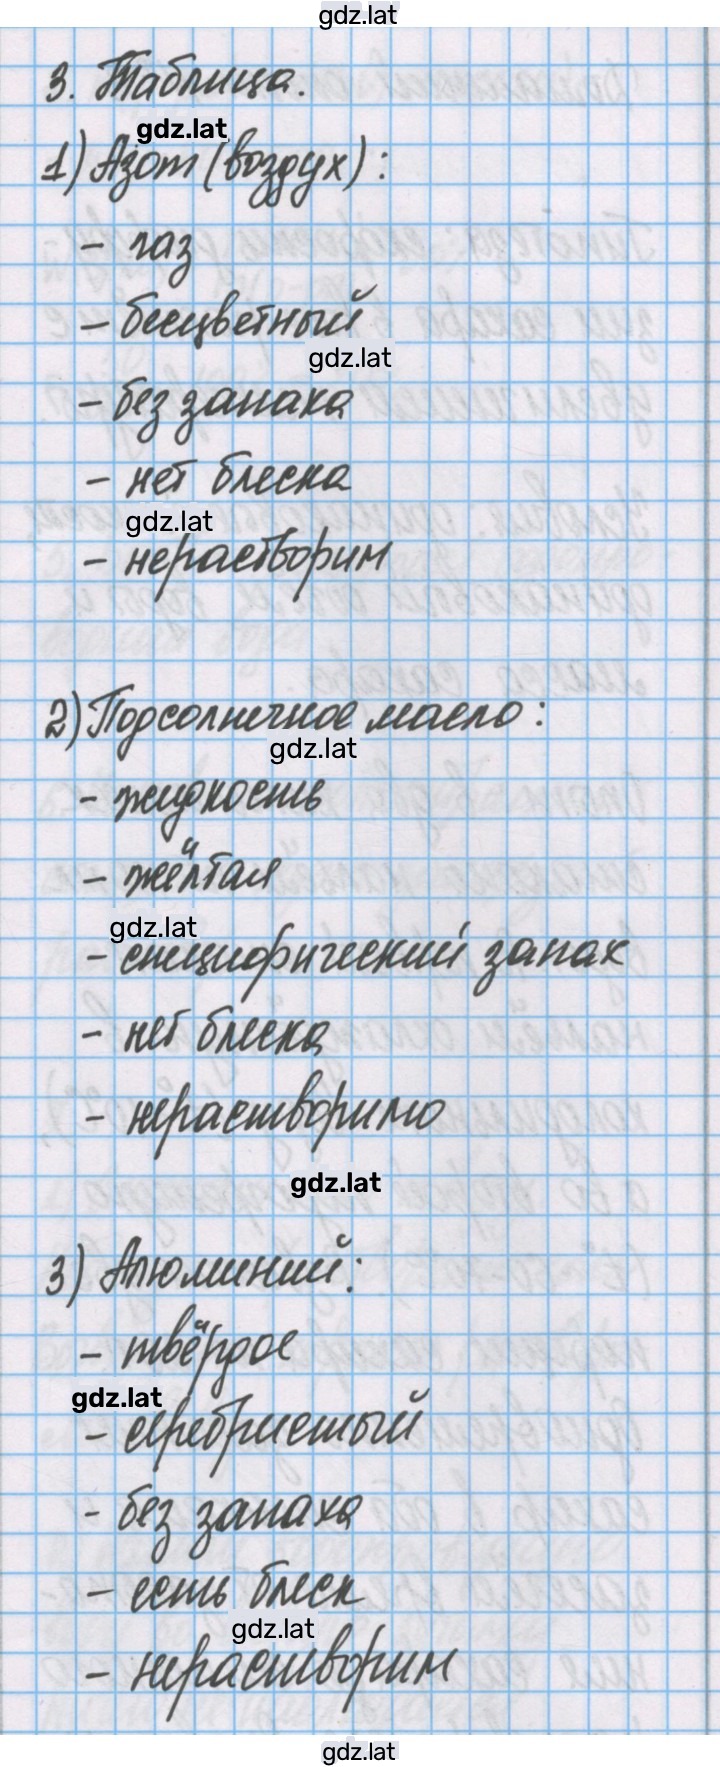 gdz.lat
3. Таблица.
gdz.lat
1) Азот (воздух):
- газ
- бесцветный
gdz.lat
- без запаха
- нет блеска
gdz.lat
- нерастворим
2) Подсолничное масло:
gdz.lat
- жидкость
- жёлтая
gdz.lat
- специфический запах
- нет блеска
- нерастворимо
gdz.lat
3) Алюминий:
- твёрдое
gdz.lat
- серебристый
- без запаха
- есть блеск
gdz.lat
- нерастворим
gdz.lat